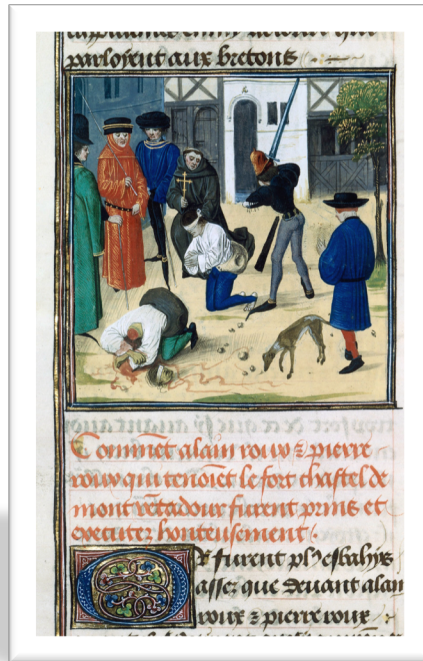 parlosent aux bretons
Comment alain roux & pierre
roux qui tenoiēt le fort chastel de
mont vētadour furent prins et
executez honteusement.
Or furent plꝰ esbahys
assez que devant alain
roux & pierre roux